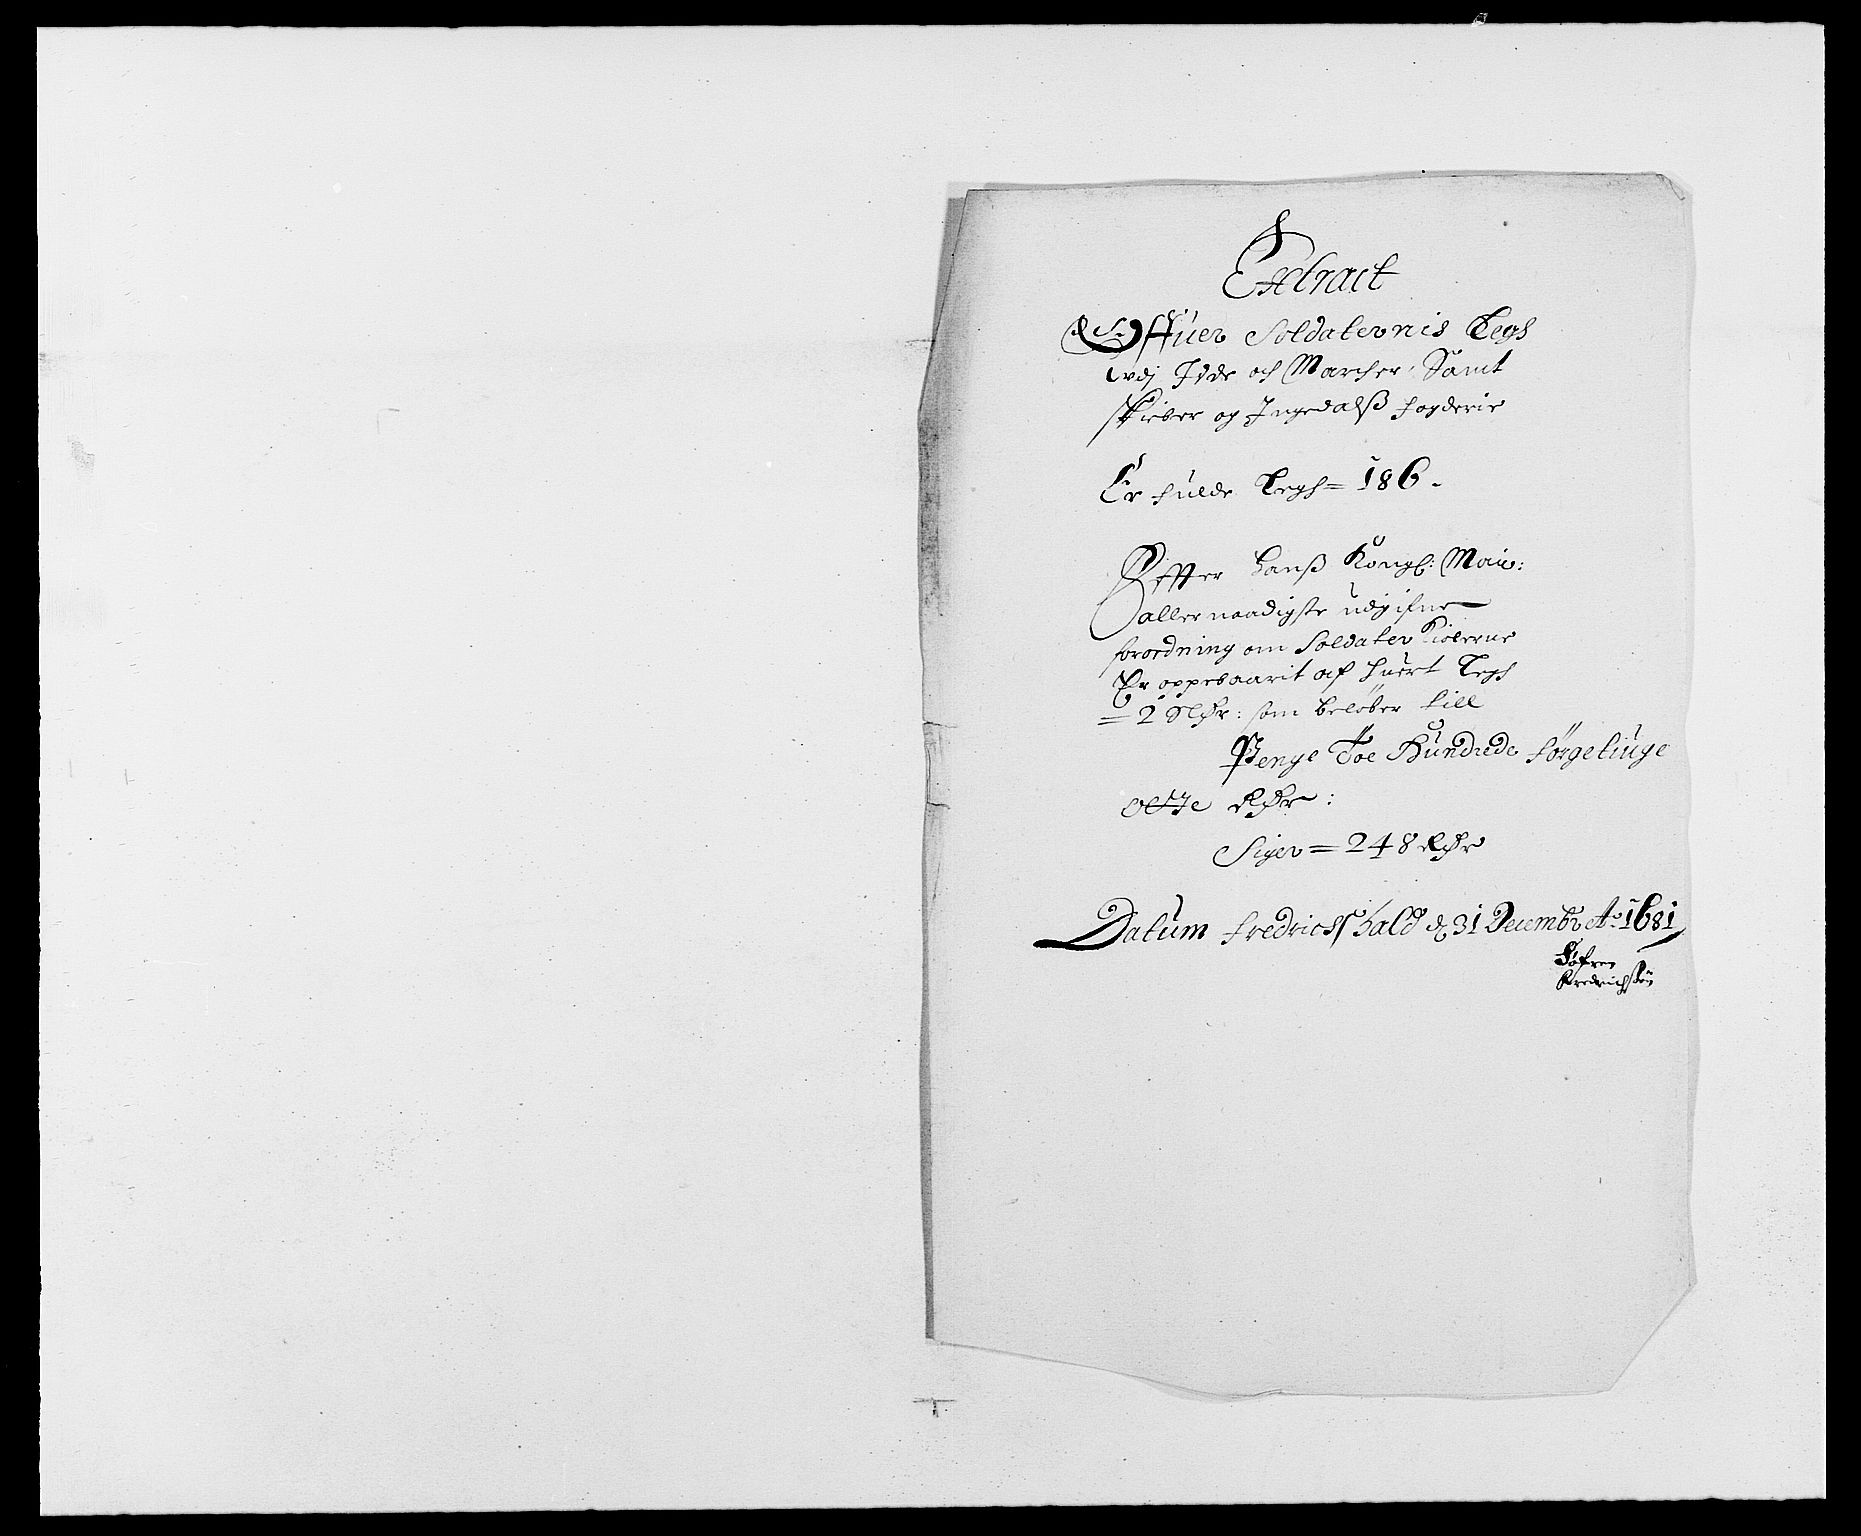 Extract
Offuer Soldaternis Legs
vdj Idde och Marcher, Samt
Skieber og Ingedalß fogderie
Er fulde Legs = 186 -
Effter Hanß Kongl: May:
allernaadigste udgifne
forordning om Soldater Kiolerne
Er oppebaarit af huert Legs
= 2 Slør: som beløber till
Penge Toe Hundredeförgetiuge
otte Rdr:
Siger = 248 Rdr
Datum fredrichshald d 31 Decembr Ao 1681
Söfren
Fredrichßön